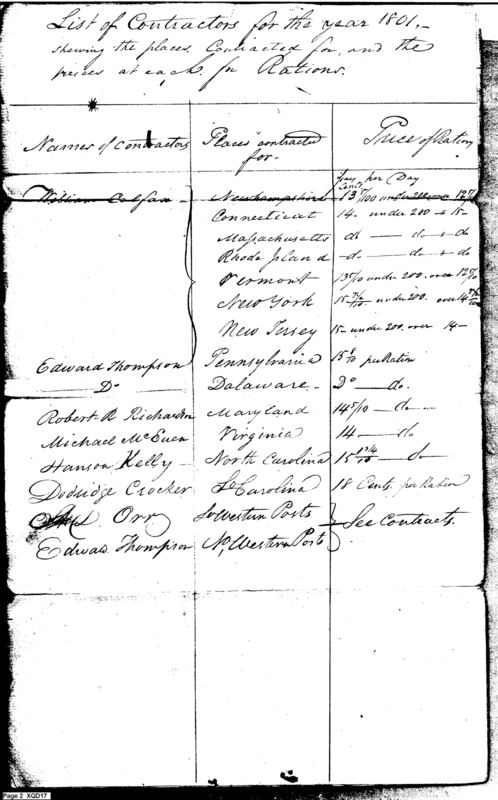 List of Contractors for the year 1801,-
shewing the places Contracted for, and the
prices at each for Rations.
Names of Contractors Places contracted for- Price of Rations
per Day
Cents
William Newhampshire 13 /100 under 200 over 12
Connecticut 14 - under 200 - 15-
Massachusetts do — do - do
Rhode Island -do - do - do
Vermont 13 5/10 under 200. over 12 5/10
New York 15 under 200. over 14
New Jersey 15 - under 200. over 14-
Edward Thompson Pennsylvania 15 /10 per Ration
Do - Dalaware - Do — do.
Robert R Richardson Maryland 14 5/10 — do -
Michael McEuen Virginia 14 — do
Hanson Kelly - North Carolina 15 — do
Dodridge Crocker So Carolina 18 Cents per Ration
Orr So Western Posts } See Contracts.
Edward Thompson No, Western Posts
Page 2 XQD17